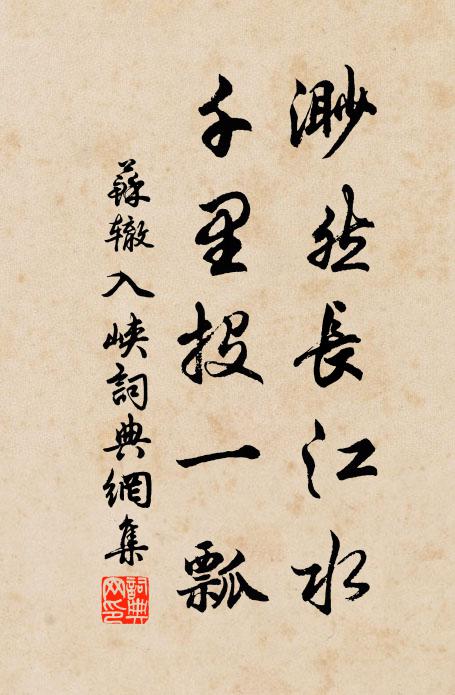 渺然長江水
千里投一瓢
蘇轍入峽詞典網集
詞典
网印